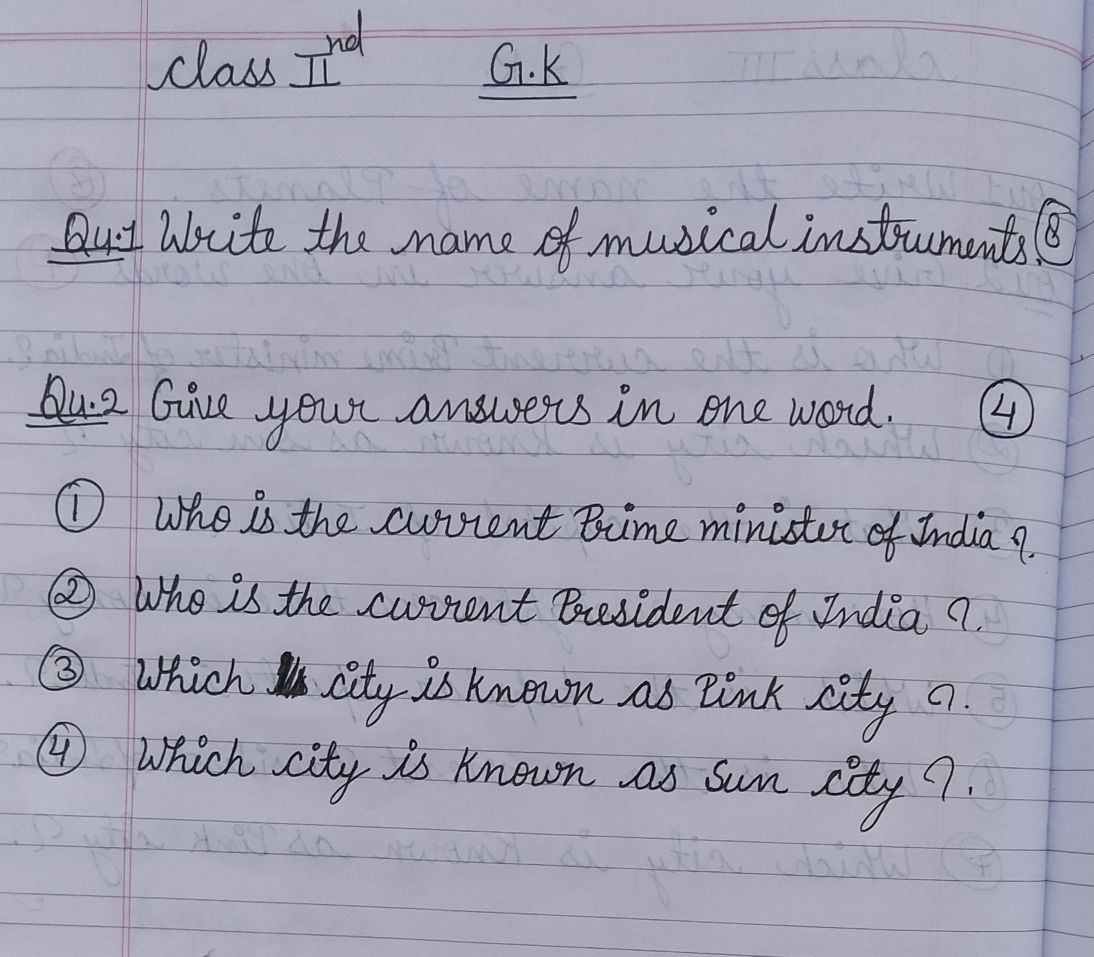 Class IInd G.K
Qu.1 Write the name of musical instruments. 8
Qu.2 Give your answers in one word. 4
1 Who is the current Prime minister of India ?.
2 Who is the current President of India ?.
3 Which city is known as Pink city ?.
4 Which city is known as Sun city ?.